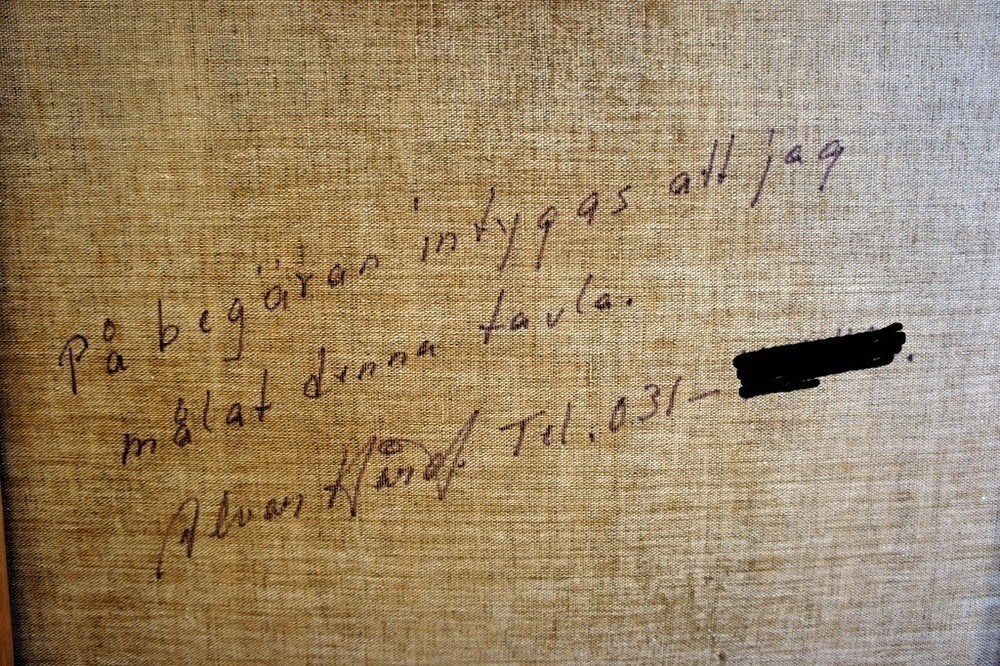 På begäran intygas att jag
målat denna tavla.
Tel. 031-